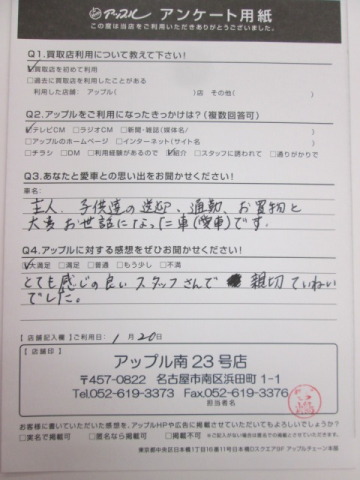 アップル アンケート用紙
この度は当店をご利用いただきありがとうございました。
Q1.買取店利用について教えて下さい!
☑買取店を初めて利用
□過去に買取店を利用したことがある
利用した店舗: アップル( )店 その他( )
Q2.アップルをご利用になったきっかけは?(複数回答可)
☑テレビCM □ラジオCM □新聞・雑誌(媒体名/ )
□アップルのホームページ □インターネット(サイト名 )
□チラシ □DM □利用経験があるので ☑紹介 □スタッフに誘われて □通りがかりで
Q3.あなたと愛車との思い出をお聞かせください!
車名:
主人、子供達の送迎、通勤、お買物と
大変お世話になった車(愛車)です。
Q4.アップルに対する感想をぜひお聞かせください!
☑大満足 □満足 □普通 □もう少し □不満
とても感じの良いスタッフさんで 親切ていねい
でした。
【店舗記入欄】ご利用日: 1月20日
【店舗印】
アップル南23号店
〒457-0822 名古屋市南区浜田町1-1
Tel.052-619-3373 Fax.052-619-3376
担当者名/
お客様に書いていただいた感想を、アップルHPや広告に掲載させていただいてもよろしいでしょうか?
□実名で掲載可 □匿名なら掲載可 □掲載不可 ※ご記入がない場合は匿名での掲載とさせていただきます。
東京都中央区日本橋1丁目16番11号日本橋Dスクエア8F アップルチェーン本部